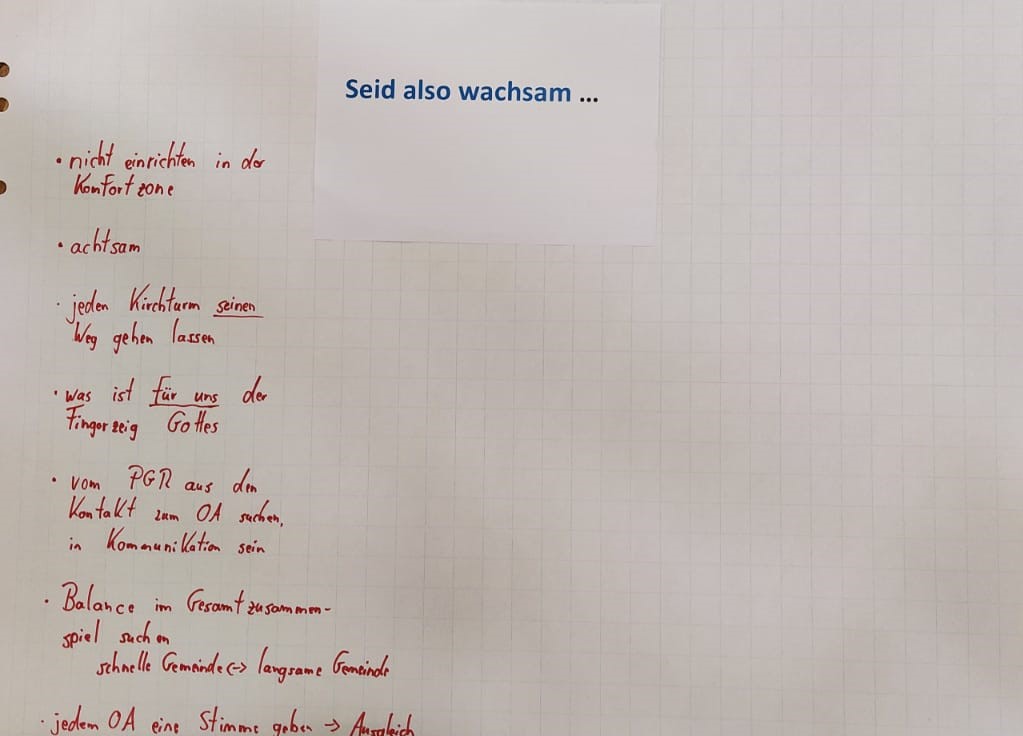 Seid also wachsam ...
• nicht einrichten in der
Komfortzone
• achtsam
• jeden Kirchturm seinen
Weg gehen lassen
• was ist für uns der
Fingerzeig Gottes
• vom PGR aus den
Kontakt zum OA suchen,
in Kommunikation sein
• Balance im Gesamtzusammen-
spiel suchen
schnelle Gemeinde <-> langsame Gemeinde
• jedem OA eine Stimme geben → Ausgleich